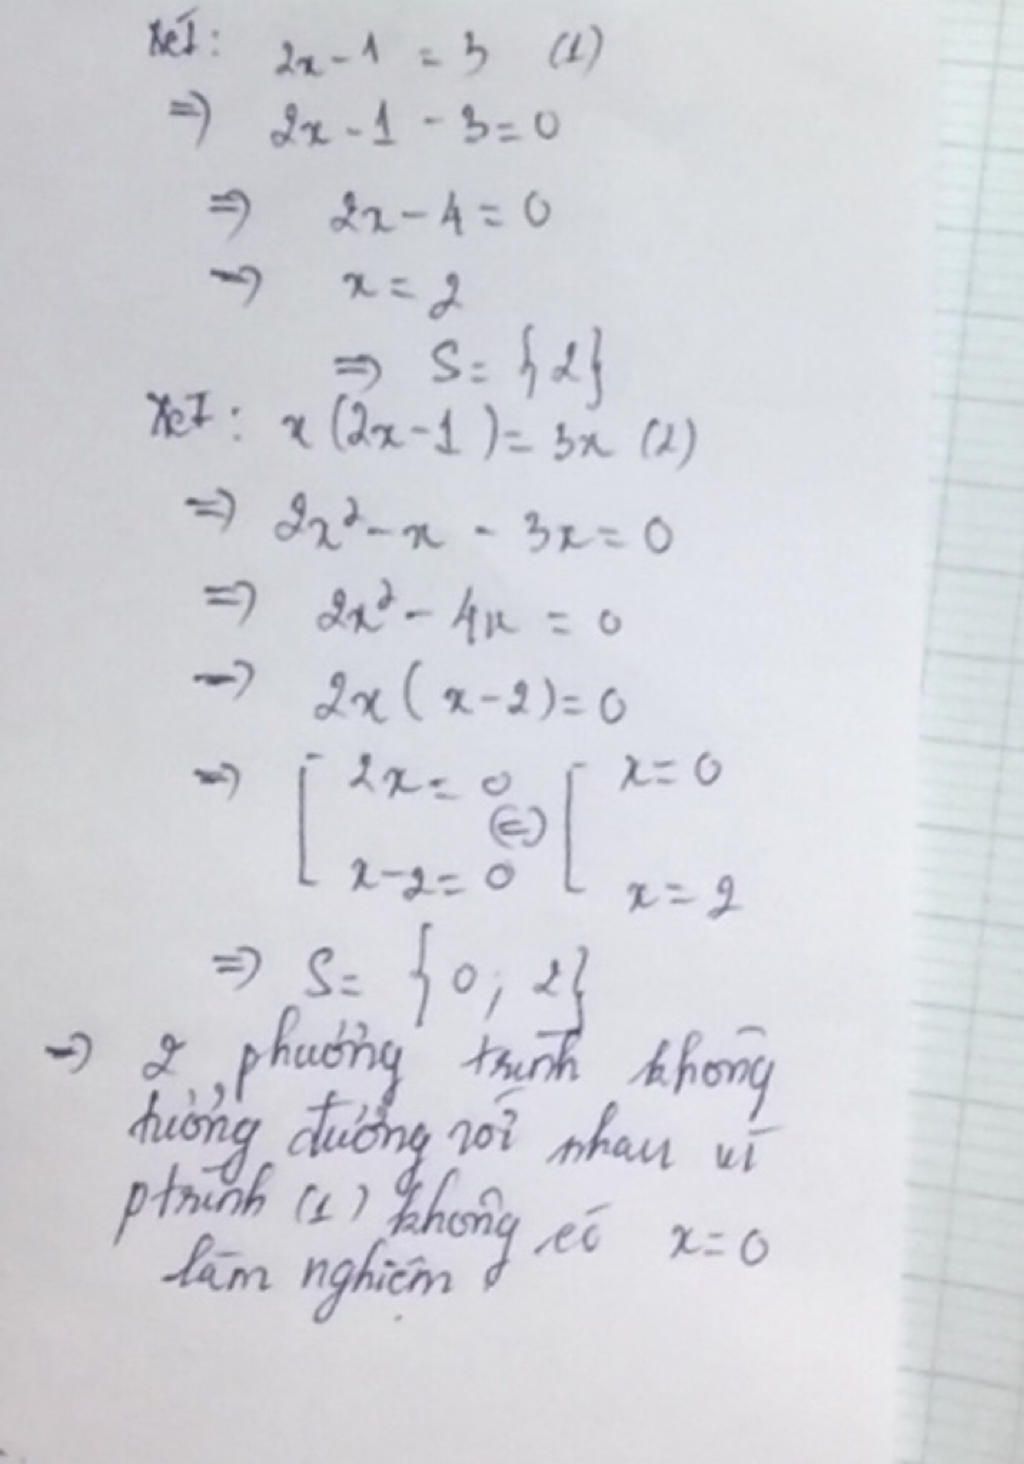 Xét: 2x - 1 = 3 (1)
=> 2x - 1 - 3 = 0
=> 2x - 4 = 0
=> x = 2
=> S = {2}
Xét: x(2x - 1) = 3x (2)
=> 2x² - x - 3x = 0
=> 2x² - 4x = 0
=> 2x(x - 2) = 0
=> [ 2x = 0 (=) [ x = 0
x - 2 = 0 x = 2
=> S = {0; 2}
=> 2 phương trình không
tương đương với nhau vì
ptrình (1) không có x = 0
làm nghiệm